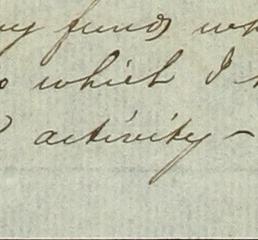 funds
which I
activity –